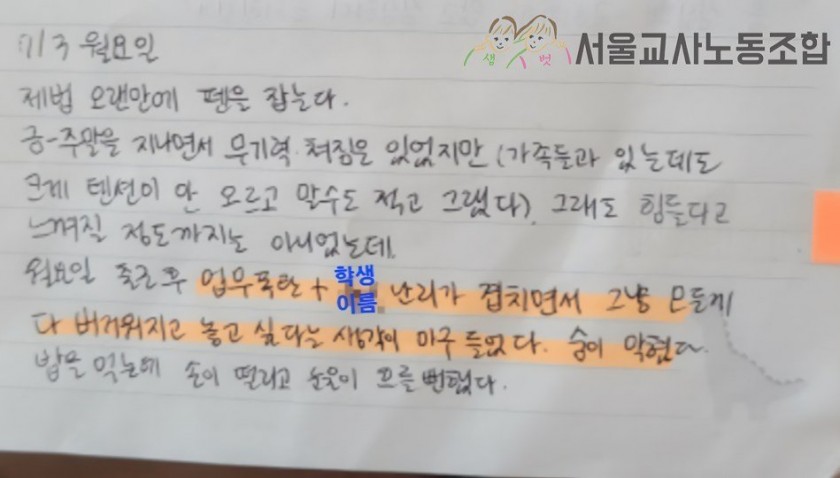 서울교사노동조합
샘 벗
7/3 월요일
제법 오랜만에 펜을 잡는다.
금-주말을 지나면서 무기력 쳐짐은 있었지만 (가족들과 있는데도
크게 텐션이 안 오르고 말수도 적고 그랬다), 그래도 힘들다고
느껴질 정도까지는 아니었는데,
월요일 출근 후 업무폭탄 + 학생 이름 난리가 겹치면서 그냥 모든게
다 버거워지고 놓고 싶다는 생각이 마구 들었다. 숨이 막혔다.
밥을 먹는데 손이 떨리고 눈물이 흐를 뻔했다.